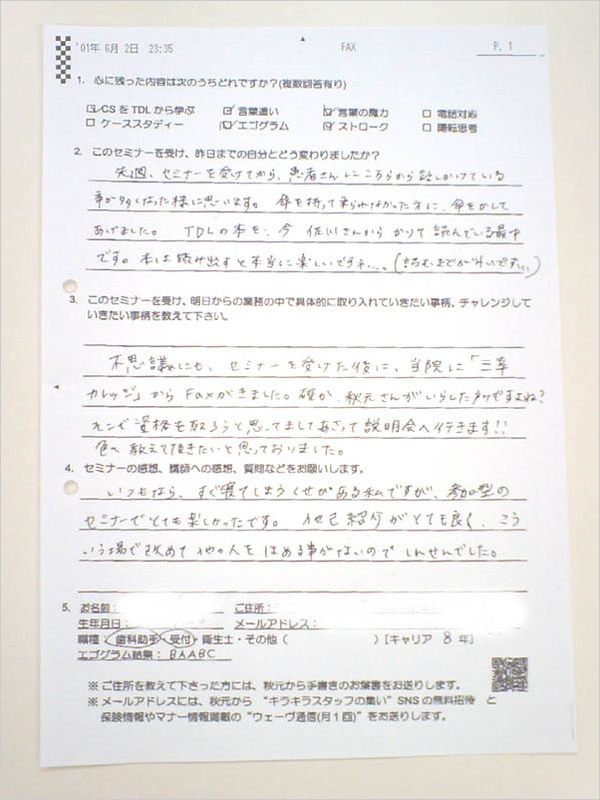 '01年 6月 2日 23:35 FAX P. 1
1. 心に残った内容は次のうちどれですか?(複数回答有り)
☑ CSをTDLから学ぶ ☑ 言葉遣い ☑ 言葉の魔力 □ 電話対応
□ ケーススタディー ☑ エゴグラム ☑ ストローク □ 陽転思考
2. このセミナーを受け、昨日までの自分とどう変わりましたか?
先週、セミナーを受けてから、患者さんにこちらから話しかけている
事が多くなった様に思います。傘を持って来られなかった方に、傘をかして
あげました。 TDLの本を、今 佐川さんから かりて 読んでいる最中
です。本は読み出すと本当に楽しいですネ…。(読むまでが
3. このセミナーを受け、明日からの業務の中で具体的に取り入れていきたい事柄、チャレンジして
いきたい事柄を教えて下さい。
不思議にも、セミナーを受けた後に、当院に「三幸
カレッジ」から Faxがきました。確か、秋元さんがいらした
資格を取ろうと思ってましてあさって説明会へ行きます!!
色々教えて頂きたいと思っておりました。
4. セミナーの感想、講師への感想、質問などをお願いします。
いつもなら、すぐ寝てしまうくせがある私ですが、参加型の
セミナーでとても楽しかったです。 他己紹介がとても良く、こう
いう場で改めて他の人をほめる事がないので しんせんでした。
5. お名前: ご住所:
生年月日: メールアドレス:
職種:歯科助手・受付・衛生士・その他 ( ) [キャリア 8 年]
エゴグラム結果: BAABC
※ ご住所を教えて下さった方には、秋元から手書きのお葉書をお送りします。
※ メールアドレスには、秋元から “キラキラスタッフの集い” SNSの無料招待 と
保険情報やマナー情報満載の “ウェーヴ通信(月1回)” をお送りします。